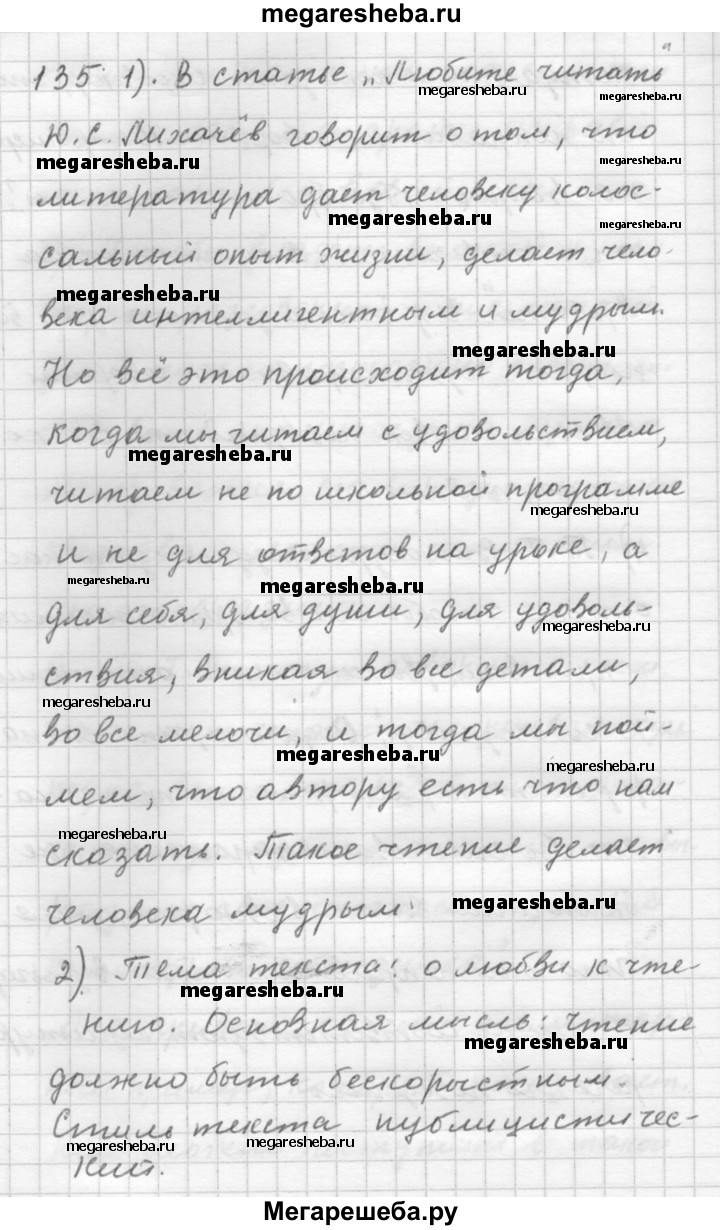 megaresheba.ru
135 1). В статье „Любите читать
megaresheba.ru
megaresheba.ru
Ю.С. Лихачёв говорит о том, что
megaresheba.ru
megaresheba.ru
литература дает человеку колос-
megaresheba.ru
megaresheba.ru
сальный опыт жизни, делает чело-
megaresheba.ru
века интеллигентным и мудрым.
megaresheba.ru
Но всё это происходит тогда,
когда мы читаем с удовольствием,
megaresheba.ru
читаем не по школьной программе
megaresheba.ru
и не для ответов на уроке, а
megaresheba.ru
megaresheba.ru
для себя, для души, для удоволь-
megaresheba.ru
ствия, вникая во все детали,
megaresheba.ru
во все мелочи, и тогда мы пой-
megaresheba.ru
megaresheba.ru
мем, что автору есть что нам
megaresheba.ru
сказать. Такое чтение делает
человека мудрым.
megaresheba.ru
2) Тема текста: о любви к чте-
megaresheba.ru
нию. Основная мысль: чтение
megaresheba.ru
должно быть бескорыстным.
Стиль текста публицистичес-
megaresheba.ru
megaresheba.ru
кий.
Мегарешеба.ру